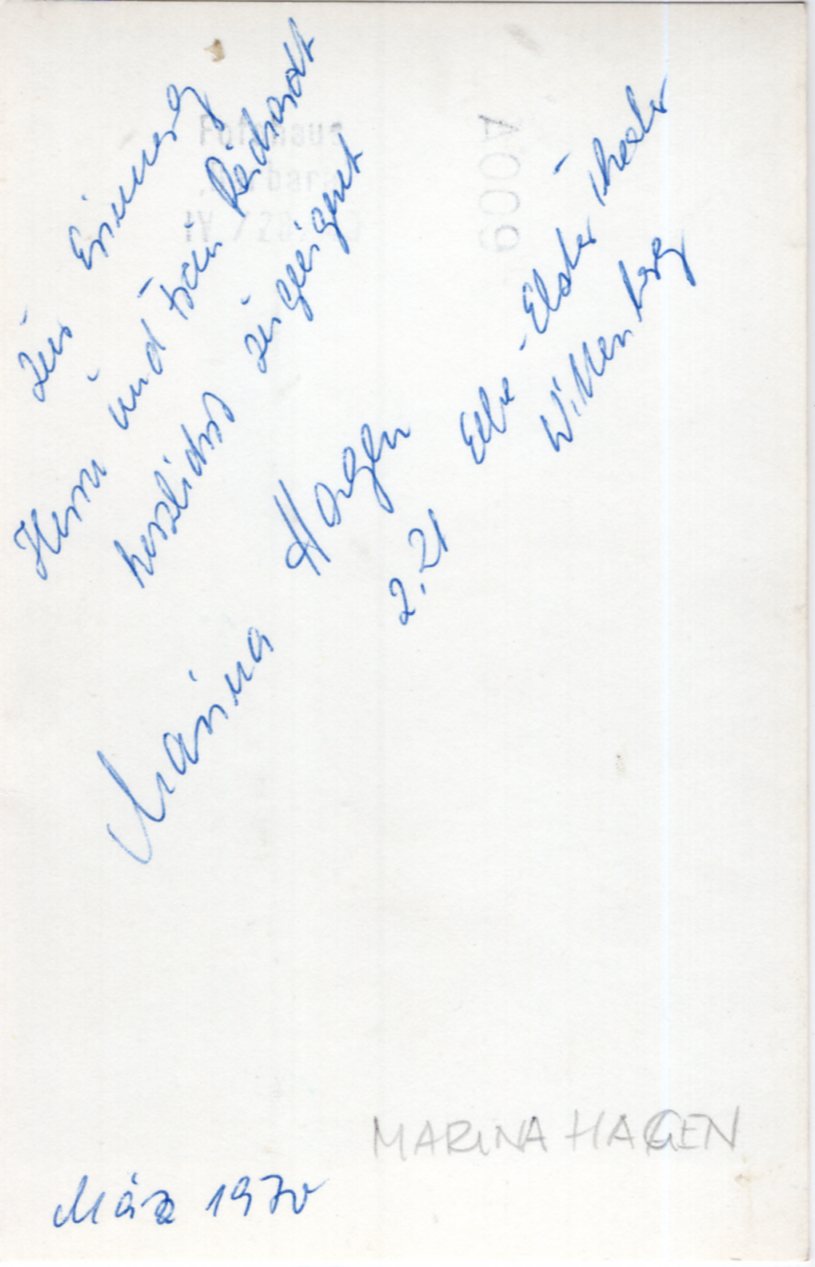 Zur Erinnerung
Herrn und Frau Reichardt
herzlichst zugeeignet
Marina Hagen
z. Zt Elbe-Elster Theater
Wittenberg
Fotohaus
A009
MARINA HAGEN
März 1970